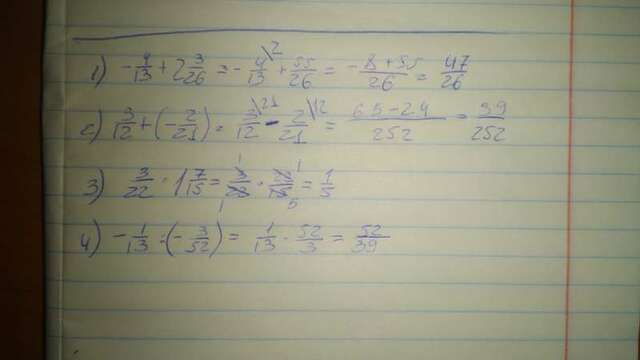 1) -4/13 + 2 3/26 = -4/13 \2 + 55/26 = -8+55/26 = 47/26
2) 3/12 + (-2/21) = 3/12 \21 - 2/21 \12 = 63-24/252 = 39/252
3) 3/22 · 1 7/15 = 3/22 · 22/15 = 1/5
4) -1/13 : (-3/52) = 1/13 · 52/3 = 52/39